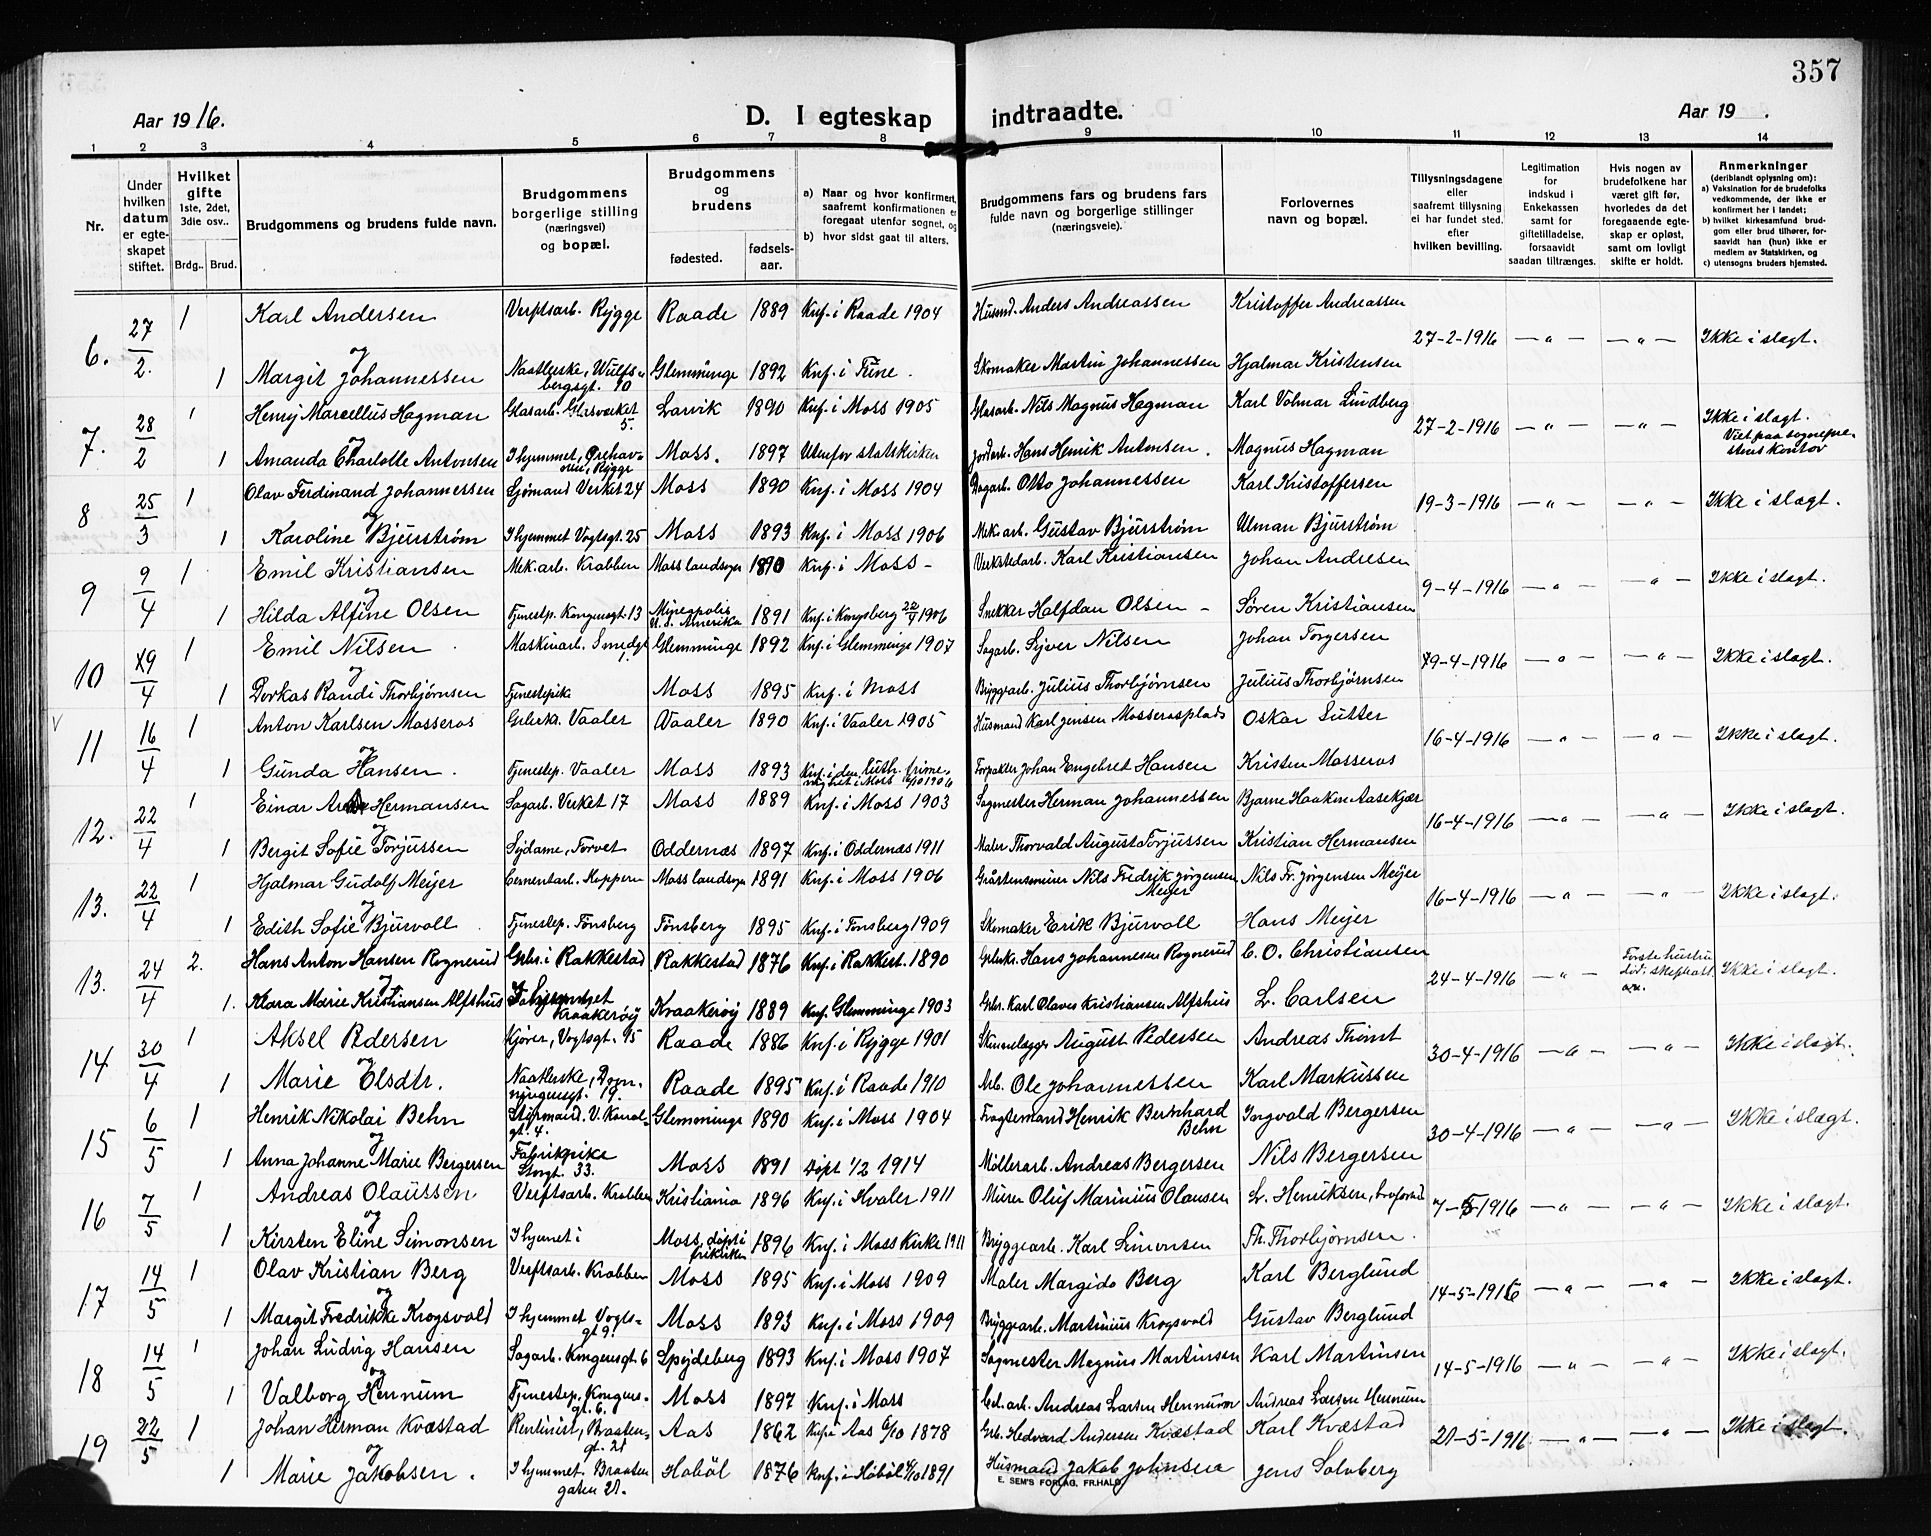 357
Aar 1916.
D. I egteskap indtraadte.
Aar 19 .
1 2 3 4 5 6 7 8 9 10 11 12 13 14
Nr.
Under hvilken datum er egteskapet stiftet.
Hvilket gifte 1ste, 2det, 3die osv..
Brdg.. Brud.
Brudgommens og brudens fulde navn.
Brudgommens borgerlige stilling (næringsvei) og bopæl.
Brudgommens og brudens
fødested. fødselsaar.
a) Naar og hvor konfirmert, saafremt konfirmationen er foregaat utenfor sognet, og
b) hvor sidst gaat til alters.
Brudgommens fars og brudens fars fulde navn og borgerlige stillinger (næringsveie).
Forlovernes navn og bopæl.
Tillysningsdagene eller saafremt tillysning ei har fundet sted, efter hvilken bevilling.
Legitimation for indskud i Enkekassen samt for giftetilladelse, forsaavidt saadan tiltrænges.
Hvis nogen av brudefolkene har været gift før, hvorledes da det foregaaende egteskap er opløst, samt om lovligt skifte er holdt.
Anmerkninger (deriblandt oplysning om):
a) Vaksination for de brudefolks vedkommende, der ikke er konfirmert her i landet;
b) hvilket kirkesamfund brudgom eller brud tilhører, forsaavidt han (hun) ikke er medlem av Statskirken, og
c) utensogns bruders hjemsted.
6. 27/2. 1 Karl Andersen Verftsarb. Rygge Raade 1889 Knf. i Raade 1904 Husmd. Anders Andreassen Kristoffer Andreassen 27-2-1916 — " — — " — Ikke i slægt.
og
1 Margit Johannessen Naatlerske, Wulfsbergsgt. 10 Glemminge 1892 Knf. i Tune. Skomaker Martin Johannessen Hjalmar Kristensen
7. 28/2 1 Henry Marcellus Hagman Glasarb. Glasverket 5. Larvik 1890 Knf. i Moss 1905 Glasarb. Nils Magnus Hagman Karl Volmar Lindberg 27-2-1916 — " — — " — Ikke i slægt. Viet paa sogneprestens kontor
og
1 Amanda Charlotte Antonsen I hjemmet, Rygge Moss. 1897 Utenfor statskirken Jordarb. Hans Henrik Antonsen. Magnus Hagman
8 25/3 1 Olav Ferdinand Johannessen Sjømand Verket 24 Moss 1890 Knf. i Moss 1904 Dagarb. Otto Johannessen Karl Kristoffersen 19-3-1916 — " — — " — Ikke i slægt.
og
1 Karoline Bjurstrøm I hjemmet Vogtsgt. 25 Moss 1893 Knf. i Moss 1906 Mek. arb. Gustav Bjurstrøm Ulman Bjurstrøm
9 9/4 1 Emil Kristiansen Mek. arb. Krabben Moss landsogn 1890 Knf. i Moss - Verkstedarb. Karl Kristiansen Johan Andresen 9-4-1916 — " — — " — Ikke i slægt.
og
1 Hilda Alfine Olsen Tjenestep. Kongensgt. 13 Mineapolis U.S. Amerika 1891 Knf. i Kongsberg 1906 Snekker Halfdan Olsen - Søren Kristiansen
10 19/4 1 Emil Nilsen Maskinarb. Smedgt 1. Glemminge 1892 Knf. i Glemminge 1907 Sagarb. Sijver Nilsen Johan Torgersen 9-4-1916 — " — — " — Ikke i slægt.
og
1 Dorkas Randi Thorbjørnsen Tjenestepike Moss 1895 Knf. i Moss Bryggearb. Julius Thorbjørnsen Julius Thorbjørnsen
11 16/4 1 Anton Karlsen Mosseros Grbrks. Vaaler Vaaler 1890 Knf. i Vaaler 1905 Husmand Karl Jensen Mosserosplads Oskar Sutter 16-4-1916 — " — — " — Ikke i slægt.
og
1 Gunda Hansen. Tjenestep. Vaaler Moss 1893 Knf. i den luth. frimenighet i Moss 1906 Forpakter Johan Engebret Hansen Kristen Mosseros
12. 22/4 1 Einar Hermansen Sagarb. Verket 17 Moss 1889 Knf. i Moss 1903 Sagmester Herman Johannessen Bjarne Haakon Aasekjær 16-4-1916 — " — — " — Ikke i slægt.
og
1 Bergit Sofie Torjussen Sydame, Torvet Oddernæs 1897 Knf. i Oddernæs 1911 Maler Thorvald August Torjussen Kristian Hermansen
13. 22/4 1 Hjalmar Gudolf Meyer Cementarb. Moss landsogn 1891 Knf. i Moss 1906 Nils Fredrik Jørgensen Meyer Nils Fr. Jørgensen Meyer 16-4-1916 — " — — " — Ikke i slægt.
og
1 Edith Sofie Bjurvoll Tjenestep. Tønsberg Tønsberg 1895 Knf. i Tønsberg 1909 Skomaker Erik Bjurvoll Hans Meyer
13. 24/4 2. Hans Anton Hansen Rognerud Grbr. i Rakkestad Rakkestad 1876 Knf. i Rakkest. 1890 Grbrks. Hans Johannesen Rognerud C. O. Christiansen 24-4-1916 — " — Første hustru død. Ikke i slægt.
og
1. Klara Marie Kristiansen Alfshus I hjemmet Kraakerøy Kraakerøy 1889 Knf. Glemminge 1903 Grbr. Karl Olaves Kristiansen Alfshus L. Carlsen
14 30/4 1 Aksel Pedersen Kjører, Vogtsgt. 15 Raade 1886 Knf. i Rygge 1901 August Pedersen Andreas Tømt 30-4-1916 — " — — " — Ikke i slægt.
og
1 Marie Elsdtr. Naatlerske, Dronningensgt. 19. Raade 1895 Knf. i Raade 1910 Arb. Ole Johannessen Karl Markussen
15 6/5 1 Henrik Nikolai Behn Styrmand. V. Kanalgt. 4. Glemminge 1890 Knf. i Moss 1904 Fragtemand Henrik Bernhard Behn Ingvald Bergersen 30-4-1916 — " — — " — Ikke i slægt.
og
1 Anna Johanne Marie Bergersen Fabrikpike Stngt. 33. Moss 1891 Døpt 1/2 1914 Møllerarb. Andreas Bergersen Nils Bergersen
16 7/5 1 Andreas Olaussen Verftsarb. Krabben Kristiania 1896 Knf. i Hvaler 1911 Murer Oluf Marinius Olausen L. Henriksen, 7-5-1916 — " — — " — Ikke i slægt.
og
1 Kirsten Eline Simonsen I hjemmet i Moss, døpt i frikirken 1896 Knf. i Moss Kirke 1911 Bryggearb. Karl Simonsen Th. Thorbjørnsen.
17 14/5 1 Olav Kristian Berg Verftsarb. Krabben Moss 1895 Knf. i Moss 1909 Maler Margido Berg Karl Berglund 14-5-1916 — " — — " — Ikke i slægt.
og
1 Margit Fredrikke Krogsvold I hjemmet Vogtsgt 9. Moss 1893 Knf. i Moss 1909 Bryggearb. Martinius Krogsvold Gustav Berglund
18 14/5 1 Johan Ludvig Hansen Sagarb. Kongensgt. 6 Spydeberg 1893 Knf. i Moss 1907 Sagmester Magnus Martinsen Karl Martinsen 14-5-1916 — " — — " — Ikke i slægt.
og
1 Valborg Hennum Tjenestep. Kongensgt. 6. Moss 1897 Knf. i Moss Andreas Larsen Hennum Andreas Larsen Hennum
19 22/5 1 Johan Herman Kvæstad Rentinist, Braatengt. 21 Aas 1862 Knf. i Aas 6/10 1878 Grb. Hedvard Andersen Kvæstad Karl Kvæstad 21-5-1916 — " — — " — Ikke i slægt.
og
1 Marie Jakobsen. I hjemmet. Braatengaten 21. Hobøl 1876 Knf. i Hobøl 1891 Husmand Jakob Johnsen Jens Solvberg
E. SEM'S FORLAG, FR.HALD